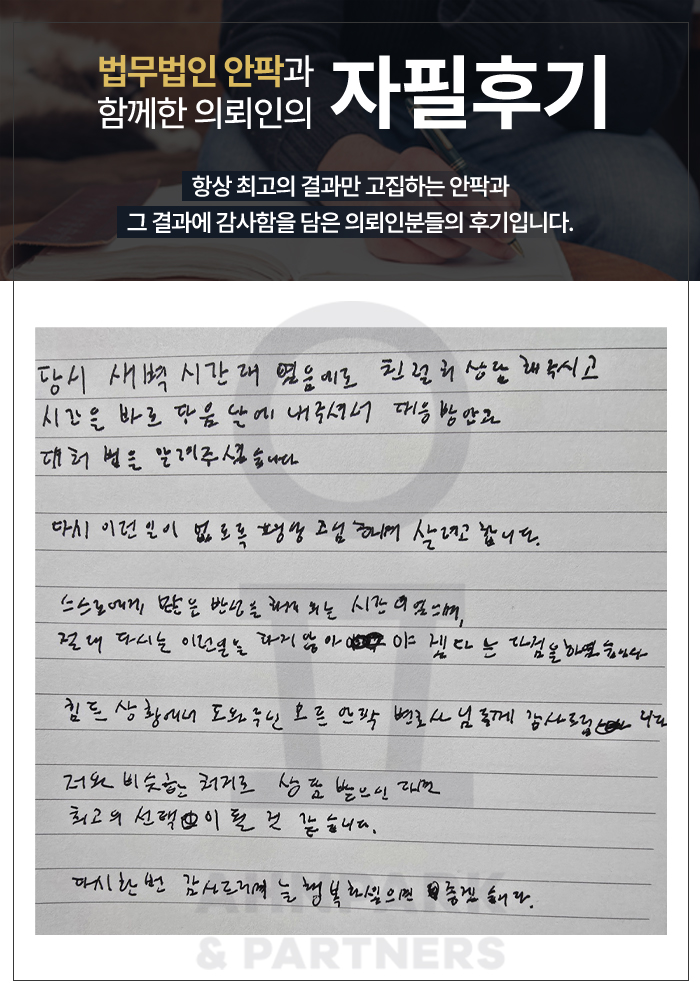 법무법인 안팍과
함께한 의뢰인의
자필후기
항상 최고의 결과만 고집하는 안팍과
그 결과에 감사함을 담은 의뢰인분들의 후기입니다.
당시 새벽 시간대 였음에도 친절히 상담 해주시고
시간을 바로 다음날에 내주셔서 대응방안과
대처 법을 알려주셨습니다
다시 이런 일이 없도록 항상 조심하며 살려고 합니다.
스스로에게 많은 반성을 하게 되는 시간이였으며,
절대 다시는 이런일을 하지 않아야 겠다는 다짐을 하였습니다
힘든 상황에서 도와주신 모든 안팍 변호사님들께 감사드립니다
저와 비슷한 처지로 상담 받으신다면
최고의 선택이 될 것 같습니다.
다시한번 감사드리며 늘 행복하셨으면 좋겠습니다.
AHNPARK
& PARTNERS